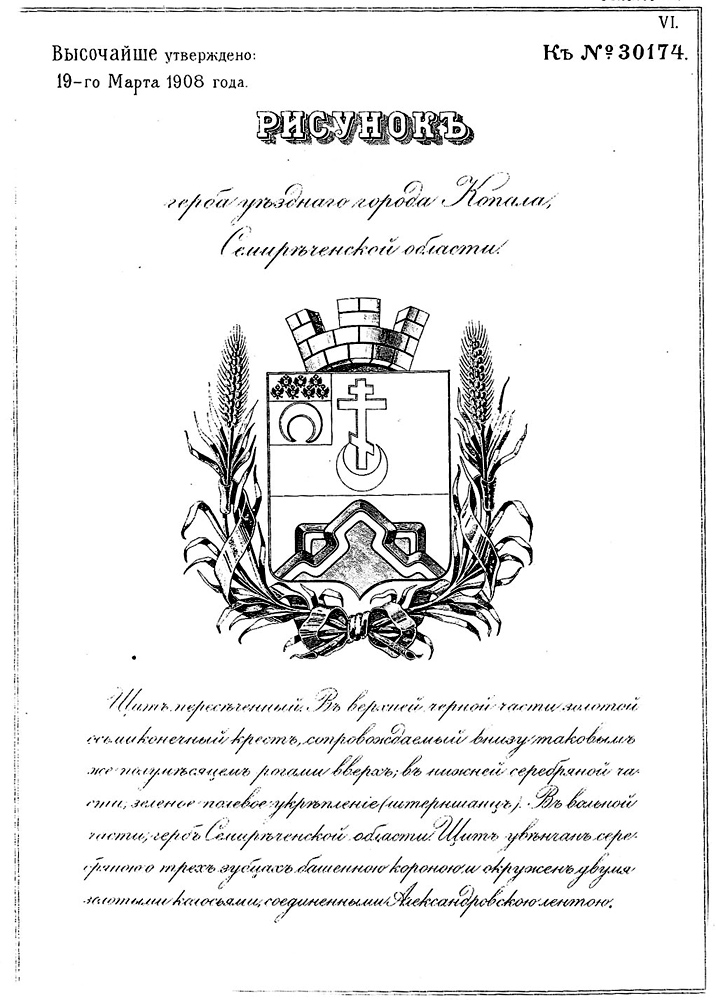 VI.
Высочайше утверждено:
Къ № 30174.
19-го Марта 1908 года.
РИСУНОКЪ
герба уѣзднаго города Копала,
Семирѣченской области.
Щитъ пересѣченный. Въ верхней черной части золотой
осьмиконечный крестъ, сопровождаемый внизу таковымъ
же полумѣсяцемъ рогами вверхъ; въ нижней серебряной ча-
сти, зеленое полевое укрѣпленіе (штерншанцъ). Въ вольной
части, гербъ Семирѣченской области. Щитъ увѣнчанъ сере-
бряною о трехъ зубцахъ башенною короною и окруженъ двумя
золотыми колосьями, соединенными Александровскою лентою.